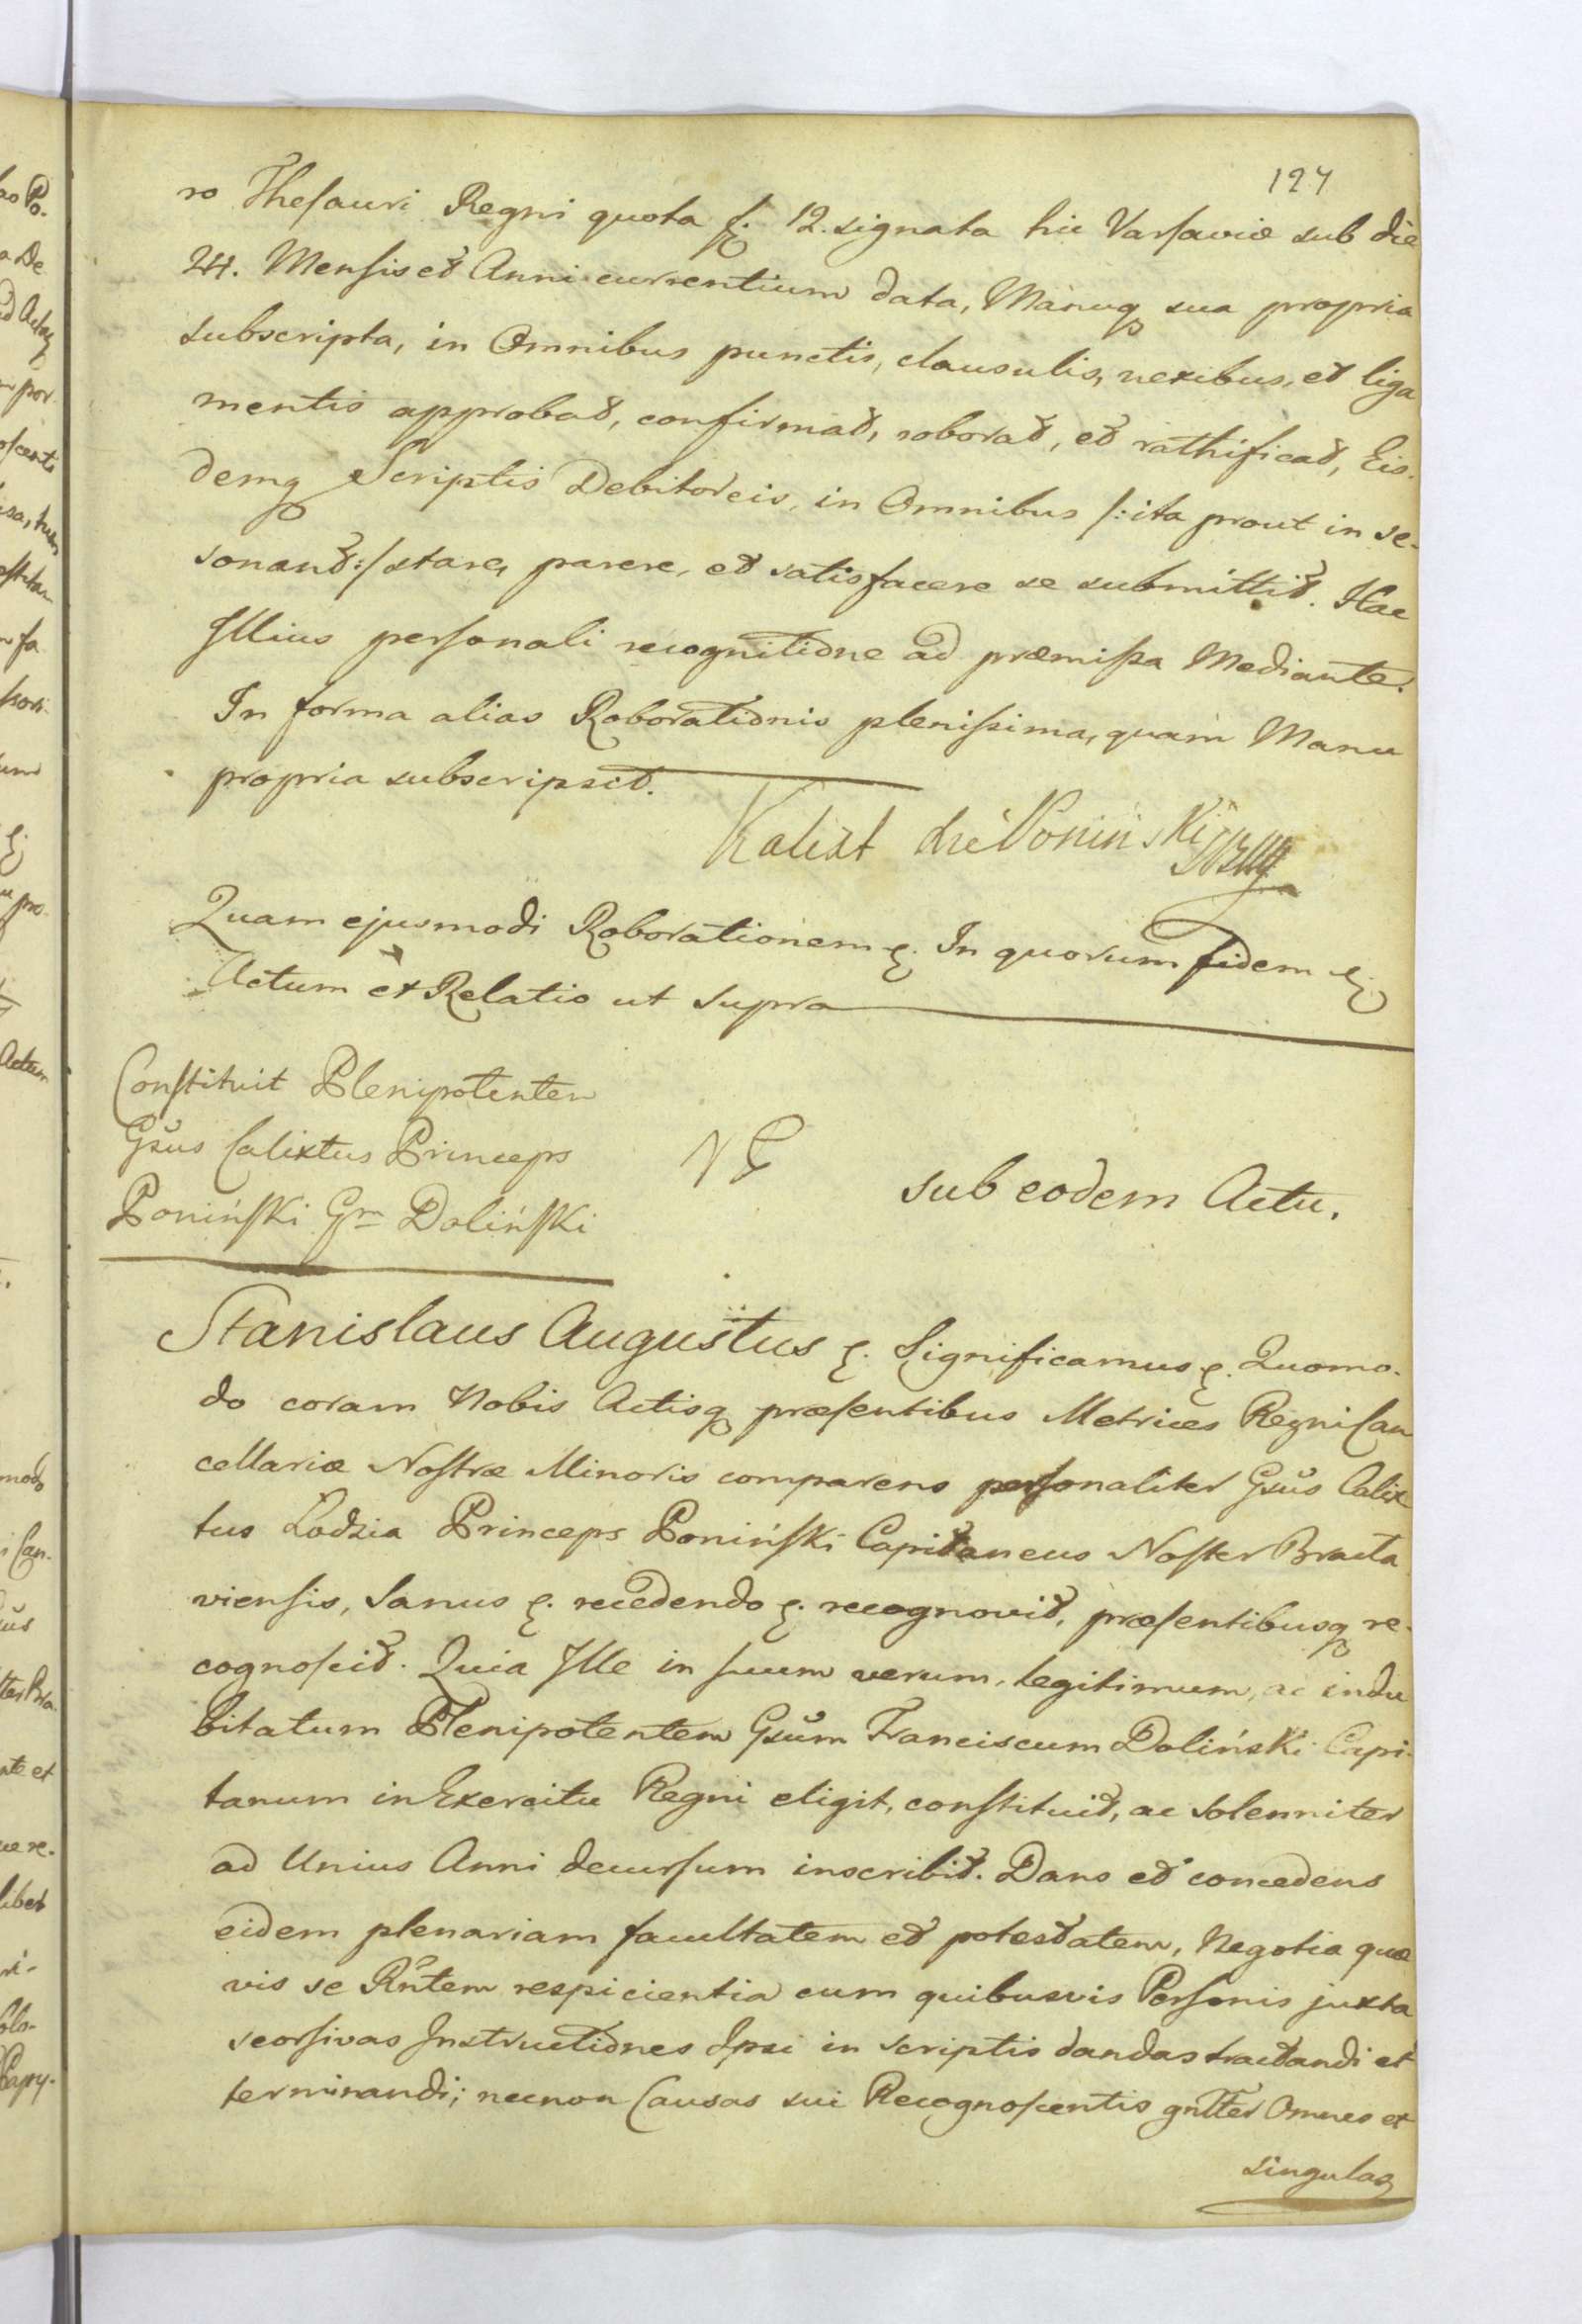 127
ro Thesauri Regni quota f. 12. signata hic Varsaviæ sub die
24. Mensis et Anni currentium data, Manuq sua propria
subscripta, in Omnibus punctis, clausulis, nexibus, et liga
mentis approbat, confirmat, roborat, et rathificat, Eis-
demq Scriptis Debitoreis, in Omnibus /: ita prout in se-
sonant :/ stare, parere, et satisfacere se submittit. Hac
Illius personali recognitione ad præmissa Mediante.
In forma alias Roborationis plenissima, quam Manu
propria subscripsit.
Kalixt Poniński
Quam ejusmodi Roborationem &. In quorum fidem &.
Actum et Relatio ut supra
Constituit Plenipotentem
Gsus Calixtus Princeps
Poniński Gm Doliński
sub eodem Actu.
Stanislaus Augustus &. Significamus &. Quomo-
do coram Nobis Actisq præsentibus Metrices Regni Can
cellariæ Nostræ Minoris comparens personaliter Gsus Calix
tus Łodzia Princeps Poniński Capitaneus Noster Bracła
viensis, Sanus &. recedendo &. recognovit, præsentibusq re-
cognoscit. Quia Ille in suum verum, legitimum, ac indu
bitatum Plenipotentem Gsum Franciscum Doliński Capi-
tanum in Exercitu Regni eligit, constituit, ac solenniter
ad Unius Anni decursum inscribit. Dans et concedens
eidem plenariam facultatem et potestatem, Negotia quæ
vis se Rntem respicientia cum quibusvis Personis juxta
seorsivas Instructiones Ipsi in scriptis dandas tractandi et
terminandi; necnon Causas sui Recognoscentis gnlter Omnes et
singulas